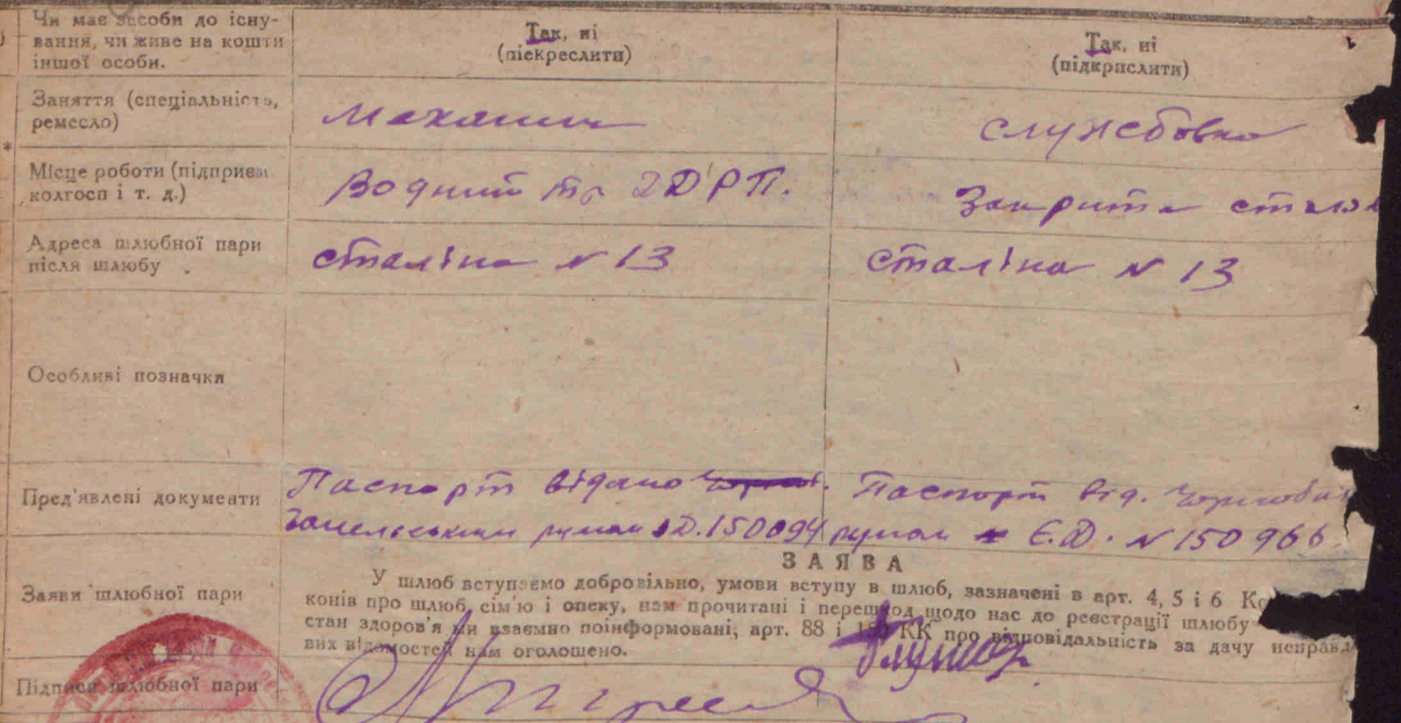 Чи має засоби до існу-
вання, чи живе на кошти
іншої особи.
Так, ні
(піекреслити)
Так, ні
(підкрпслити)
Заняття (спеціальність,
ремесло)
Механик
службовка
Місце роботи (підприєм
колгосп і т. д.)
Водний тр ДРП.
Закрита
Адреса шлюбної пари
після шлюбу
Сталіна N 13
Сталіна N 13
Особливі позначки
Пред'явлені документи
Паспорт видано
Д. 150094
Паспорт від.
Є.Д. N 150966
Заяви шлюбної пари
ЗАЯВА
У шлюб вступаємо добровільно, умови вступу в шлюб, зазначені в арт. 4, 5 і 6
конів про шлюб, сім'ю і опеку, нам прочитані і перешкод щодо нас до реєстрації шлюбу
стан здоров'я ми взаємно поінформовані, арт. 88 і КК про відповідальність за дачу неправд
вих відомостей нам оголошено.
Підписи шлюбної пари